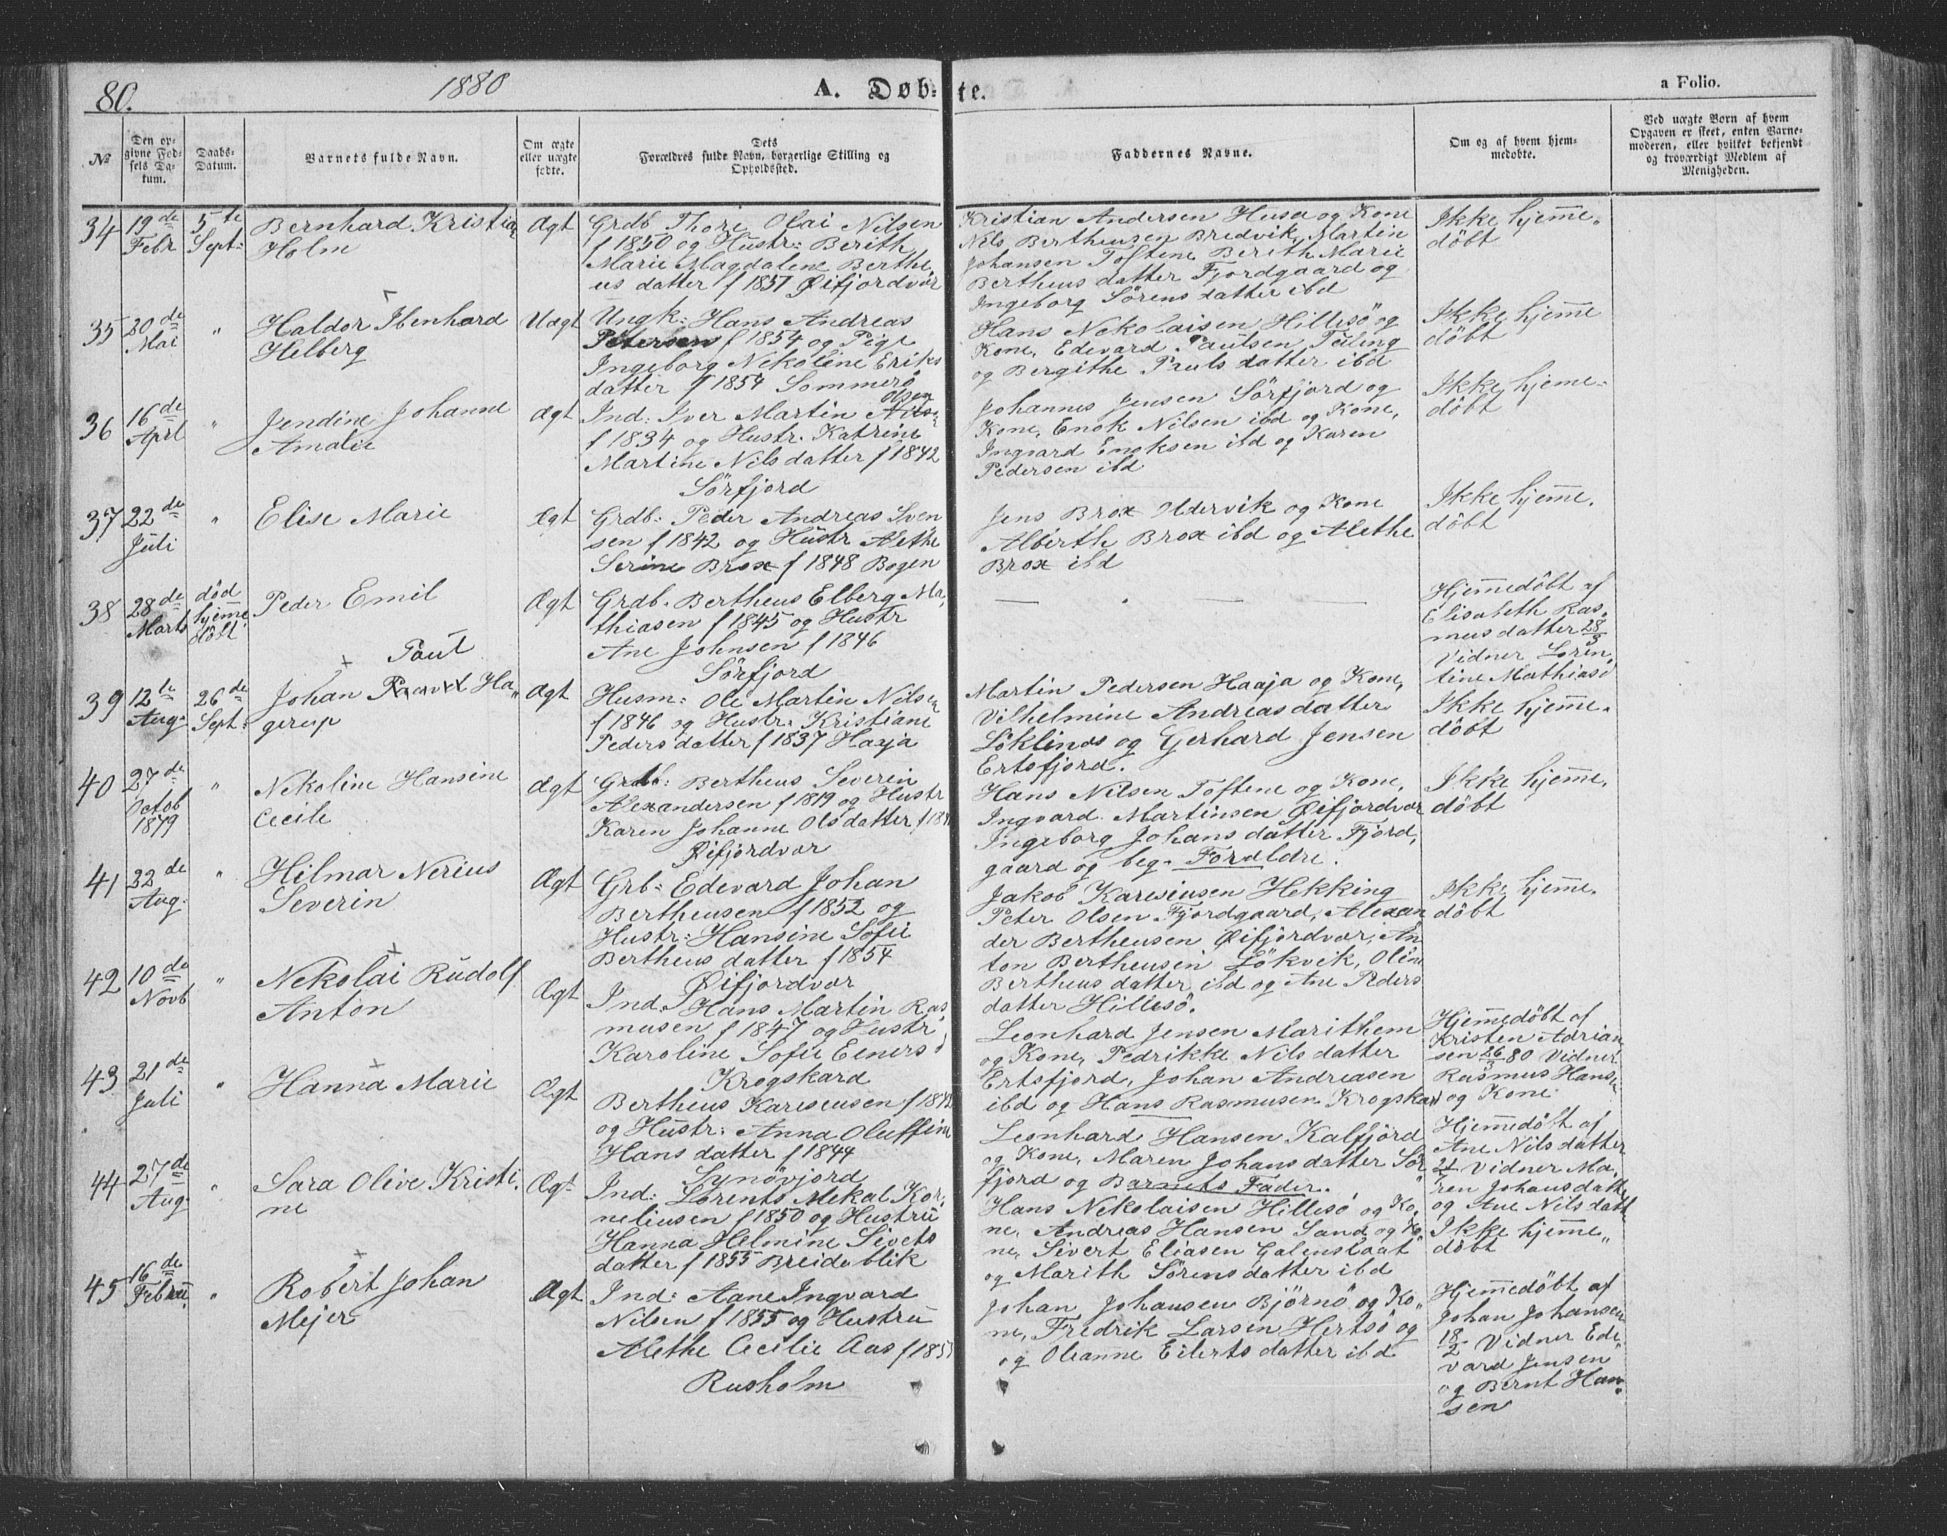 80. 1880 A. Døb- te. a Folio.
№
Den op-
givne Fød-
sels Da-
tum.
Daabs-
Datum.
Barnets fulde Navn.
Om ægte
eller uægte
fødte.
Dets
Forældres fulde Navn, borgerlige Stilling og
Opholdssted.
Faddernes Navne.
Om og af hvem hjem-
medøbte.
Ved uægte Børn af hvem
Opgaven er skeet, enten Barne-
moderen, eller hvilket bekjendt
og troværdigt Medlem af
Menigheden.
34
19de
Febr
5te
Sept:
Bernhard Kristian
Holm
Ægt
Grdb Thore Olai Nilsen
f 1850 og Hustr: Berith
Marie Magdalene Berthe,
us datter f 1857 Øifjordvær
Kristian Andersen Husa og Kone
Nils Bertheusen Bredvik, Martin
Johansen Toftene Berith Marie
Bertheus datter Fjordgaard og
Ingeborg Sörens datter ibd
Ikke hjemme-
döbt
35
20de
Mai
"
Haldor Ibenhard
Helberg
Uægt
Ungk: Hans Andreas
Petersen f 1854 og Pige
Ingeborg Nekoline Eriks
datter f 1854 Sommerö
Hans Nekolaisen Hillesö og
Kone, Edevard Paulsen
og Bergithe Pauls datter ibd
Ikke hjemme
döbt
36
16de
April
"
Jendine Johanne
Amalie
Ægt
Olsen
Ind: Iver Martin
f 1834 og Hustr. Katrine
Martine Nils datter f 1842
Sörfjord
Johannes Jensen Sörfjord og
Kone, Enok Nilsen ibd og Kone,
Ingvard Enoksen ibd og Karen
Pedersen ibd
Ikke hjemme-
döbt
37
22de
Juli
"
Elise Marie
Ægt
Grdb: Peder Andreas Sven
sen f 1842 og Hustr Alethe
Serine Brox f 1848 Bogen
Jens Brox Oldervik og Kone
Alberth Brox ibd og Alethe
Brox ibd
Ikke hjemme.
döbt
38
28de
Marts
död
hjemme
döbt
Peder Emil
Ægt
Grdb. Bertheus Elberg Ma,
thiasen f 1845 og Hustr
Ane Johnsen f 1846
Sörfjord
Hjemmedöbt af
Elisabeth Ras,
mus datter 28/3
Vidner Loren,
tine Mathiasd
39
12te
Aug.
26de
Sept:
Paul
Johan Ha,
gerup
Ægt
Husm: Ole Martin Nilsen
f 1846 og Hustr. Kristiane
Peders datter f 1837 Haaja
Martin Pedersen Haaja og Kone,
Vilhelmine Andreas datter
Löklines og Gerhard Jensen
Ertsfjord.
Ikke hjemme.
döbt
40
27de
Octob
1879
"
Nekoline Hansine
Cecile
Ægt
Grdb: Bertheus Severin
Alexandersen f 1819 og Hustr
Karen Johanne Ols datter f
Øifjordvær
Hans Nilsen Toftene og Kone,
Ingvard Martinsen Øifjordvær
Ingeborg Johans datter Fjord,
gaard og beg. Foræld​re.
Ikke hjemme,
döbt
41
22de
Aug.
"
Hilmar Nerius
Severin
Ægt
Grb: Edevard Johan
Bertheusen f 1852 og
Hustr: Hansine Sofie
Bertheus datter f 1854
Øifjordvær
Jakob Karesiusen Hekking
Peter Olsen Fjordgaard, Alexan
der Bertheusen Øifjordvær, An
ton Bertheusen Lökvik, Oline
Bertheus datter ibd og Ane Peders
datter Hillesö.
Ikke hjemme.
döbt
42
10de
Novb
"
Nekolai Rudolf
Anton
Ægt
Ind. Hans Martin Ras
musen f 1847 og Hustr
Karoline Sofie Einers d
Krogskard
Leonhard Jensen Marithem
og Kone, Pedrikke Nils datter
Ertsfjord, Johan Andreasen
ibd og Hans Rasmusen Krogskard
Hjemmedöbt af
Kristen Adrian
sen 26 80 Vidner
Rasmus Hansen
og Kone
43
21de
Juli
"
Hanna Marie
Ægt
Bertheus Karesiusen f 1842
og Hustr: Anna Oluffine
Hans datter f 1844
Synövjord
Leonhard Hansen Kalfjord
og Kone, Maren Johans datter Sör
fjord og Barnets Fader.
Hjemmedöbt af
Ane Nils datter
Vidner Ma,
ren Johans datter
og Ane Nils datter
44
27de
Aug
"
Sara Olive Kristi,
ne
Ægt
Ind: Lorents Mekal Kor,
neliusen f 1850 og Hustru
Hanna Helmine Siverts
datter f 1855 Breideblik
Hans Nekolaisen Hillesö og Ko,
ne, Andreas Hansen Sand og Ko
ne, Sivert Eliasen Galenslaat
og Marith Sörens datter ibd
Ikke hjemme,
döbt
45
16de
Febru.
"
Robert Johan
Mejer
Ægt
Ind: Aane Ingvard
Nilsen f 1855 og Hustru
Alethe Cecilie Aas f 1855
Rusholm
Johan Johansen Björnö og Ko,
ne, Fredrik Larsen Hertsö og
og Oleanne Eilerts datter ibd
Hjemmedöbt af
Johan Johansen
18/2 Vidner Ede
vard Jensen
og Bernt Han,
sen